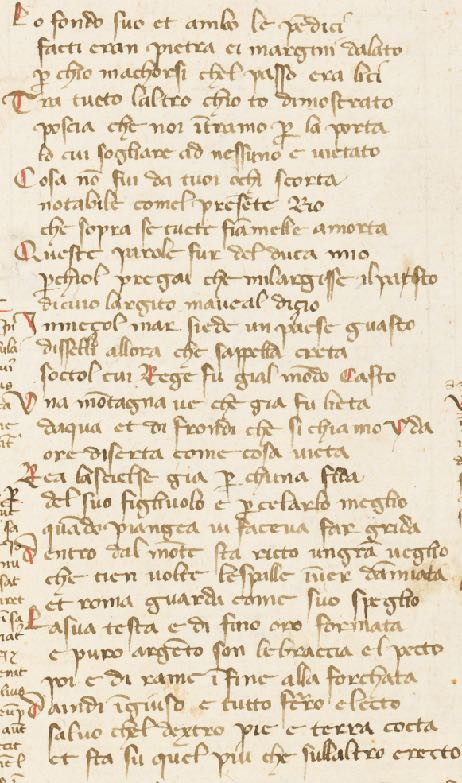 Lo fondo suo et ambo le pēdici
facti eran pietra ei margini dalato
p̱ chio machorsi chel passo era lici
Tra tucto laltro chio to dimostrato
poscia che noi ītramo p̱ la porta
lo cui sogliare ad nessuno e vietato
Cosa nō fui da tuoi ochi scorta
notabile comel presēte Rio
che sopra se tucte fiāmelle amorta
Queste parole fur del duca mio
p̱chiol pregai che milargisse il pasto
di cuio largito maveal disio
In meçol mar siede un paese guasto
disselli allora che sappella creta
soctol cui Rege fu gial mōdo Casto
Una mōtagna ve che gia fu lieta
daqua et di frondi che si chiamo Yda
ore diserta come cosa vieta
Rea lascielse gia p̱ chuna fida
del suo figliuolo e p̱ celarlo meglio
quādo piangea vi faceva far grida
Dentro dal mōte sta ricto un grā veglio
che tien volte lespalle īver dāmiata
et roma guarda come suo speglio
La sua testa e di fino oro formata
e puro argēto son le braccia el pecto
poi e di rame ī fine alla forchata
Da indi īgiuso e tutto ferro electo
salvo chel dextro pie e terra cocta
et sta su quel piu che sullaltro erecto